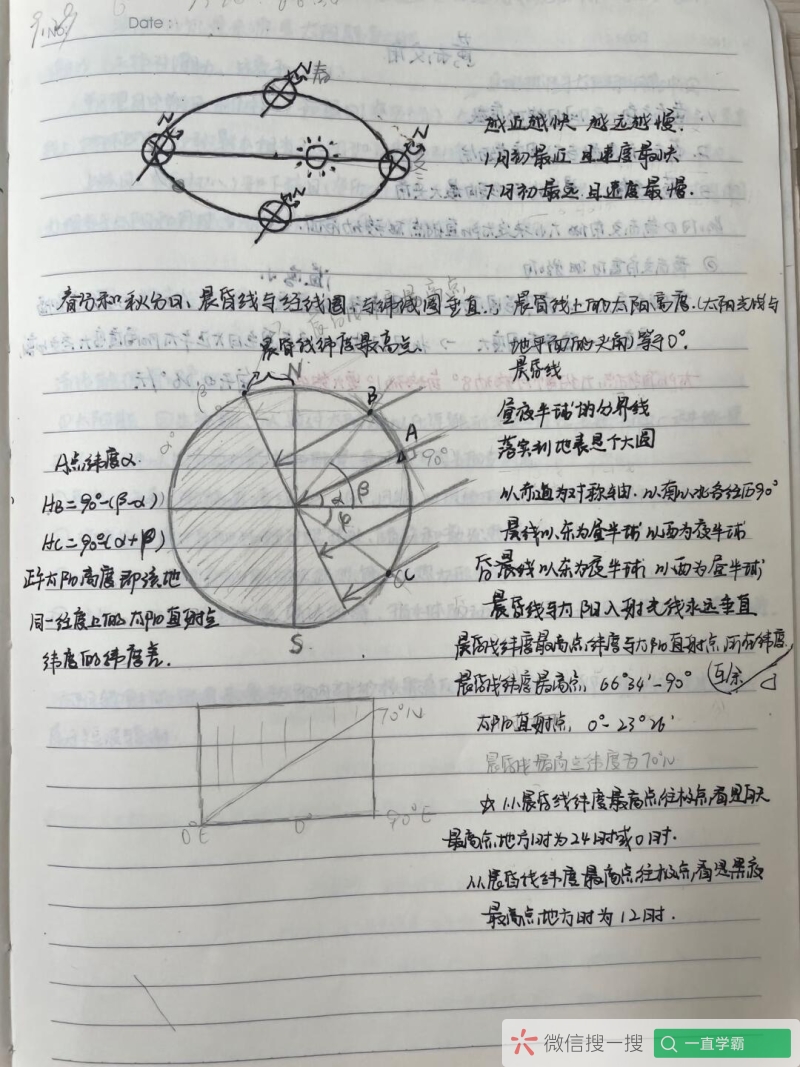 Date:
N 春
N
N
N 冬
越近越快 越远越慢.
1月初最近 且速度最快
7月初最远 且速度最慢.
春分和秋分日、晨昏线与经线圈,与纬线圈垂直., 晨昏线上的太阳高度.(太阳光线与
地平面间的夹角)等于0°.
晨昏线纬度最高点.
晨昏线
昼夜半球的分界线
落实到地表是个大圆
以赤道为对称轴. 以南以北各经历90°
晨线以东为昼半球 以西为夜半球
昏晨线以东为夜半球 以西为昼半球
晨昏线与太阳入射光线永远垂直
晨昏线纬度最高点,纬度与太阳直射点所在纬度
晨昏线纬度最高点, 66°34′-90° 互余
太阳直射点, 0°-23°26′
晨昏线最高点纬度为70°N
从晨昏线纬度最高点往极点看是白天
最高点地方时为24时或0时.
从晨昏线纬度最高点往极点看是黑夜
最高点地方时为12时.
A点纬度α
HB=90°-(β-α)
HC=90°-(α+φ)
正午太阳高度即该地
同一经度上的太阳直射点
纬度的纬度差.
β
N
B
A
90°
α°
α
β
φ
C
S
70°N
0°E
0°
90°E
微信搜一搜
一直学霸